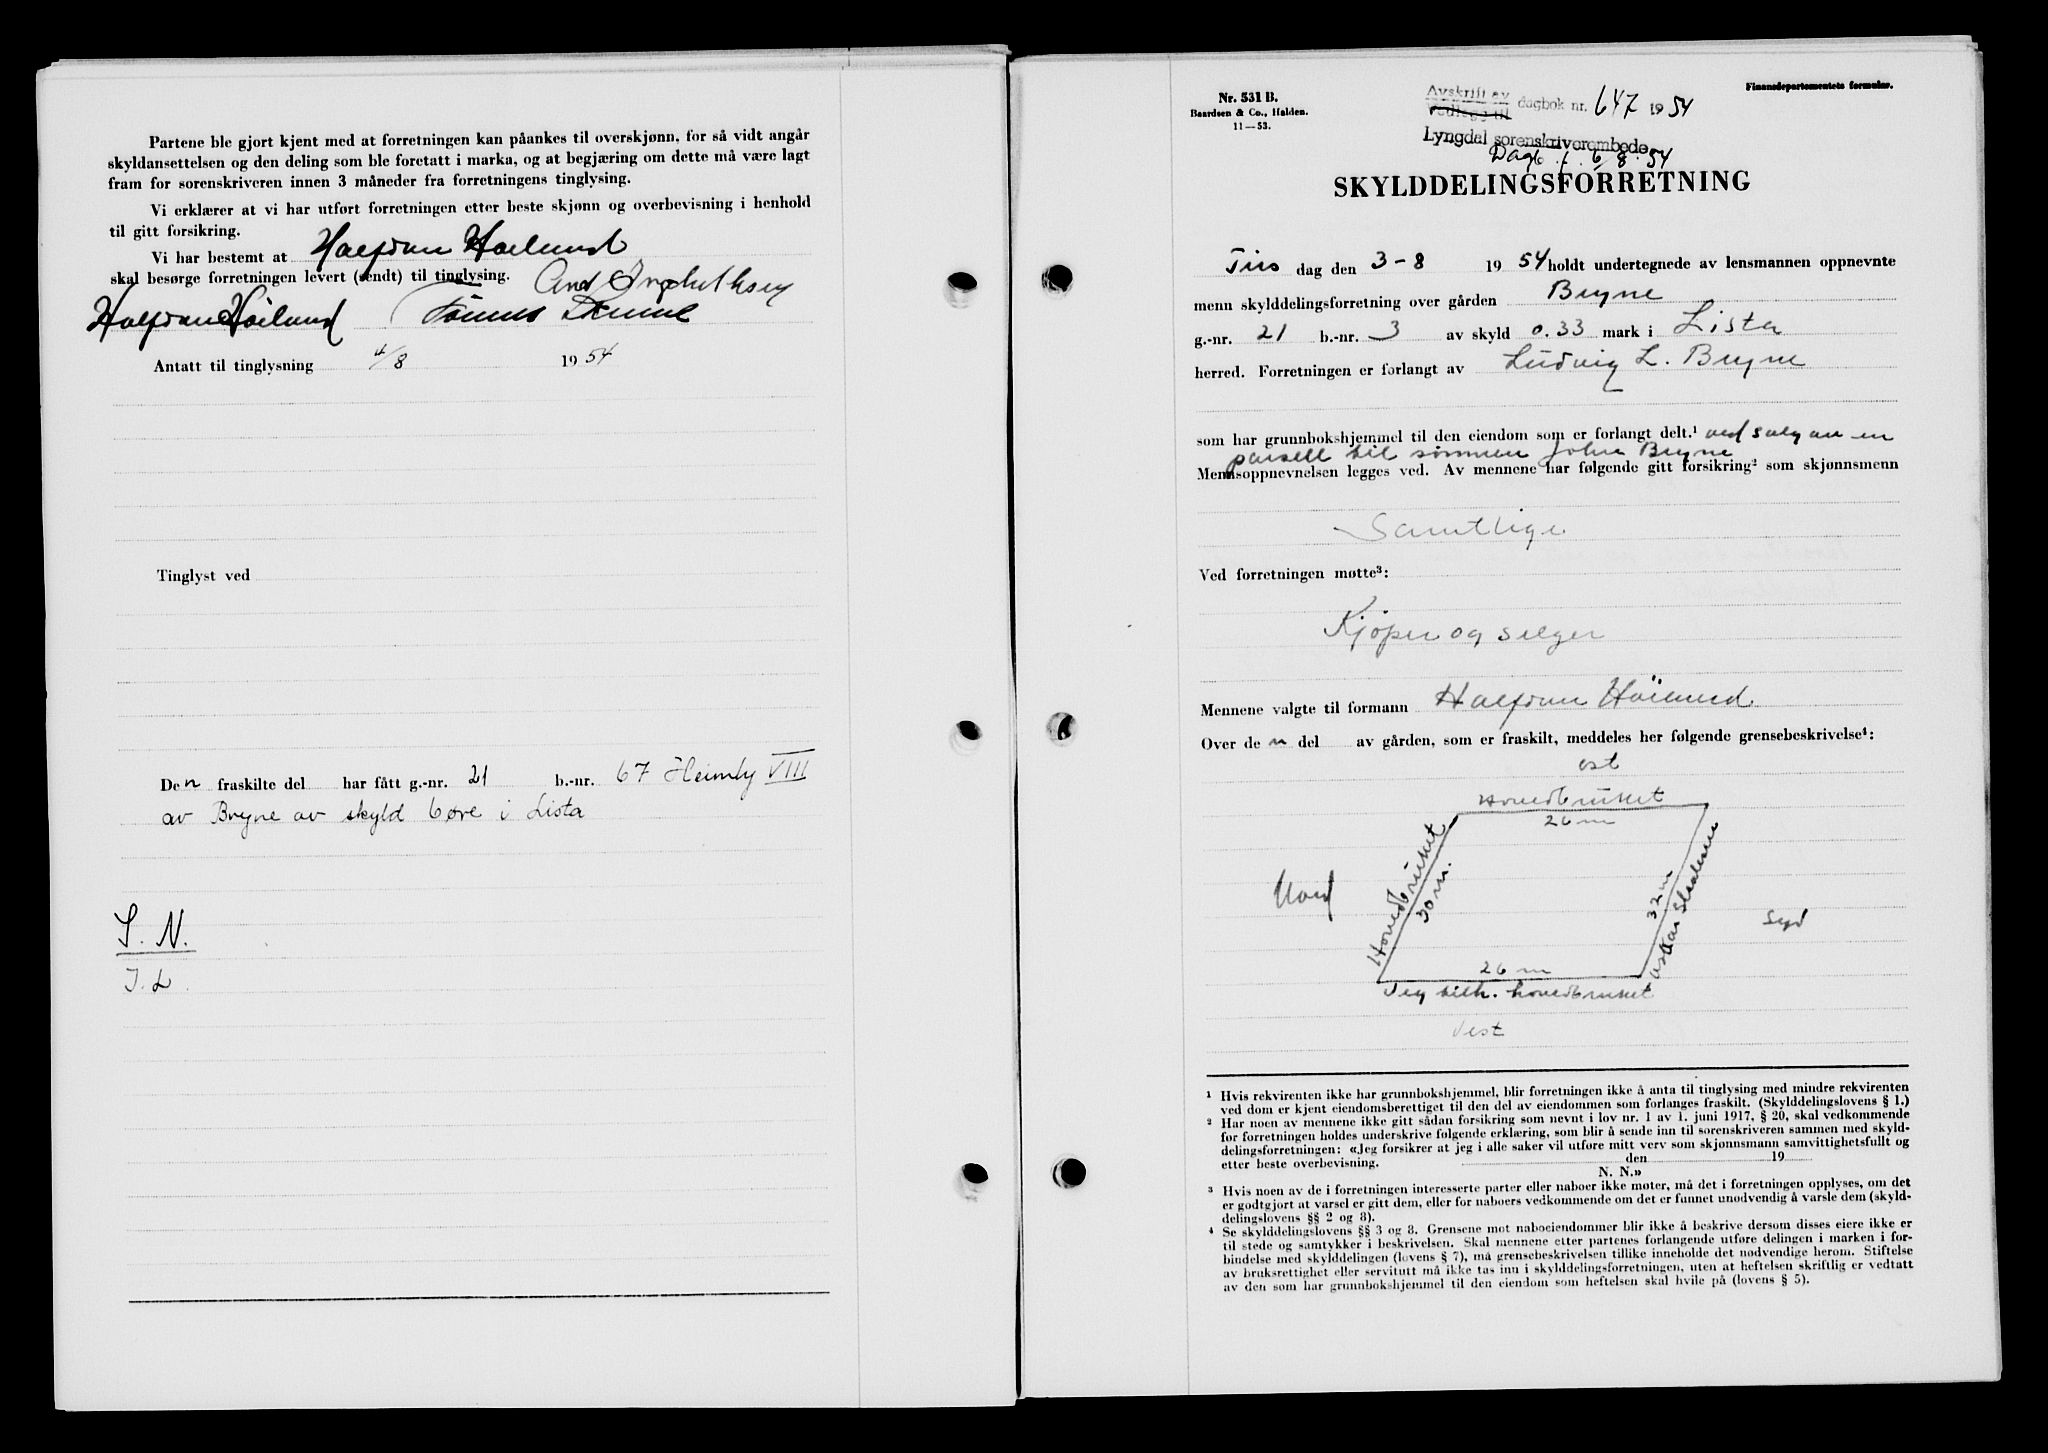 Partene ble gjort kjent med at forretningen kan påankes til overskjønn, for så vidt angår
skyldansettelsen og den deling som ble foretatt i marka, og at begjæring om dette må være lagt
fram for sorenskriveren innen 3 måneder fra forretningens tinglysing.
Vi erklærer at vi har utført forretningen etter beste skjønn og overbevisning i henhold
til gitt forsikring.
Vi har bestemt at Halfdan Høilund
skal besørge forretningen levert (sendt) til tinglysing.
Halfdan Høilund Tønnes
Antatt til tinglysning 4/8 1954
Tinglyst ved
Den fraskilte del har fått g.-nr. 21 b.-nr. 67 Heimly VIII
av Bryne av skyld 6 øre i Lista
S. N.
J. L.
Nr. 531 B.
Baardsen & Co., Halden.
11—53.
Avskrift av
Vedlegg til dagbok nr. 647 1954
Lyngdal sorenskriverembede
Dagb. f. 6/8 54
Finansdepartementets formular.
SKYLDDELINGSFORRETNING
Tirs dag den 3-8 1954 holdt undertegnede av lensmannen oppnevnte
menn skylddelingsforretning over gården Bryne
g.-nr. 21 b.-nr. 3 av skyld 0.33 mark i Lista
herred. Forretningen er forlangt av Ludvig L. Bryne
som har grunnbokshjemmel til den eiendom som er forlangt delt.¹ ved salg av en
parsell til sønnen John Bryne
Mennsoppnevnelsen legges ved. Av mennene har følgende gitt forsikring² som skjønnsmenn
Samtlige
Ved forretningen møtte³:
Kjøper og selger
Mennene valgte til formann Halfdan Höilund
Over de n del av gården, som er fraskilt, meddeles her følgende grensebeskrivelse⁴:
øst
Hovedbruket
26 m
Hovedbruket
30 m.
Nord
32 m
Syd
26 m
Veg tilh. hovedbruket
Vest
¹ Hvis rekvirenten ikke har grunnbokshjemmel, blir forretningen ikke å anta til tinglysing med mindre rekvirenten
ved dom er kjent eiendomsberettiget til den del av eiendommen som forlanges fraskilt. (Skylddelingslovens § 1.)
² Har noen av mennene ikke gitt sådan forsikring som nevnt i lov nr. 1 av 1. juni 1917, § 20, skal vedkommende
før forretningen holdes underskrive følgende erklæring, som blir å sende inn til sorenskriveren sammen med skyld-
delingsforretningen: «Jeg forsikrer at jeg i alle saker vil utføre mitt verv som skjønnsmann samvittighetsfullt og
etter beste overbevisning. den 19
N. N.»
³ Hvis noen av de i forretningen interesserte parter eller naboer ikke møter, må det i forretningen opplyses, om det
er godtgjort at varsel er gitt dem, eller for naboers vedkommende om det er funnet unødvendig å varsle dem (skyld-
delingslovens §§ 2 og 8).
⁴ Se skylddelingslovens §§ 3 og 8. Grensene mot naboeiendommer blir ikke å beskrive dersom disses eiere ikke er
til stede og samtykker i beskrivelsen. Skal mennene etter partenes forlangende utføre delingen i marken i for-
bindelse med skylddelingen (lovens § 7), må grensebeskrivelsen tillike inneholde det nødvendige herom. Stiftelse
av bruksrettighet eller servitutt må ikke tas inn i skylddelingsforretningen, uten at heftelsen skriftlig er vedtatt
av den som har grunnbokshjemmel til den eiendom som heftelsen skal hvile på (lovens § 5).